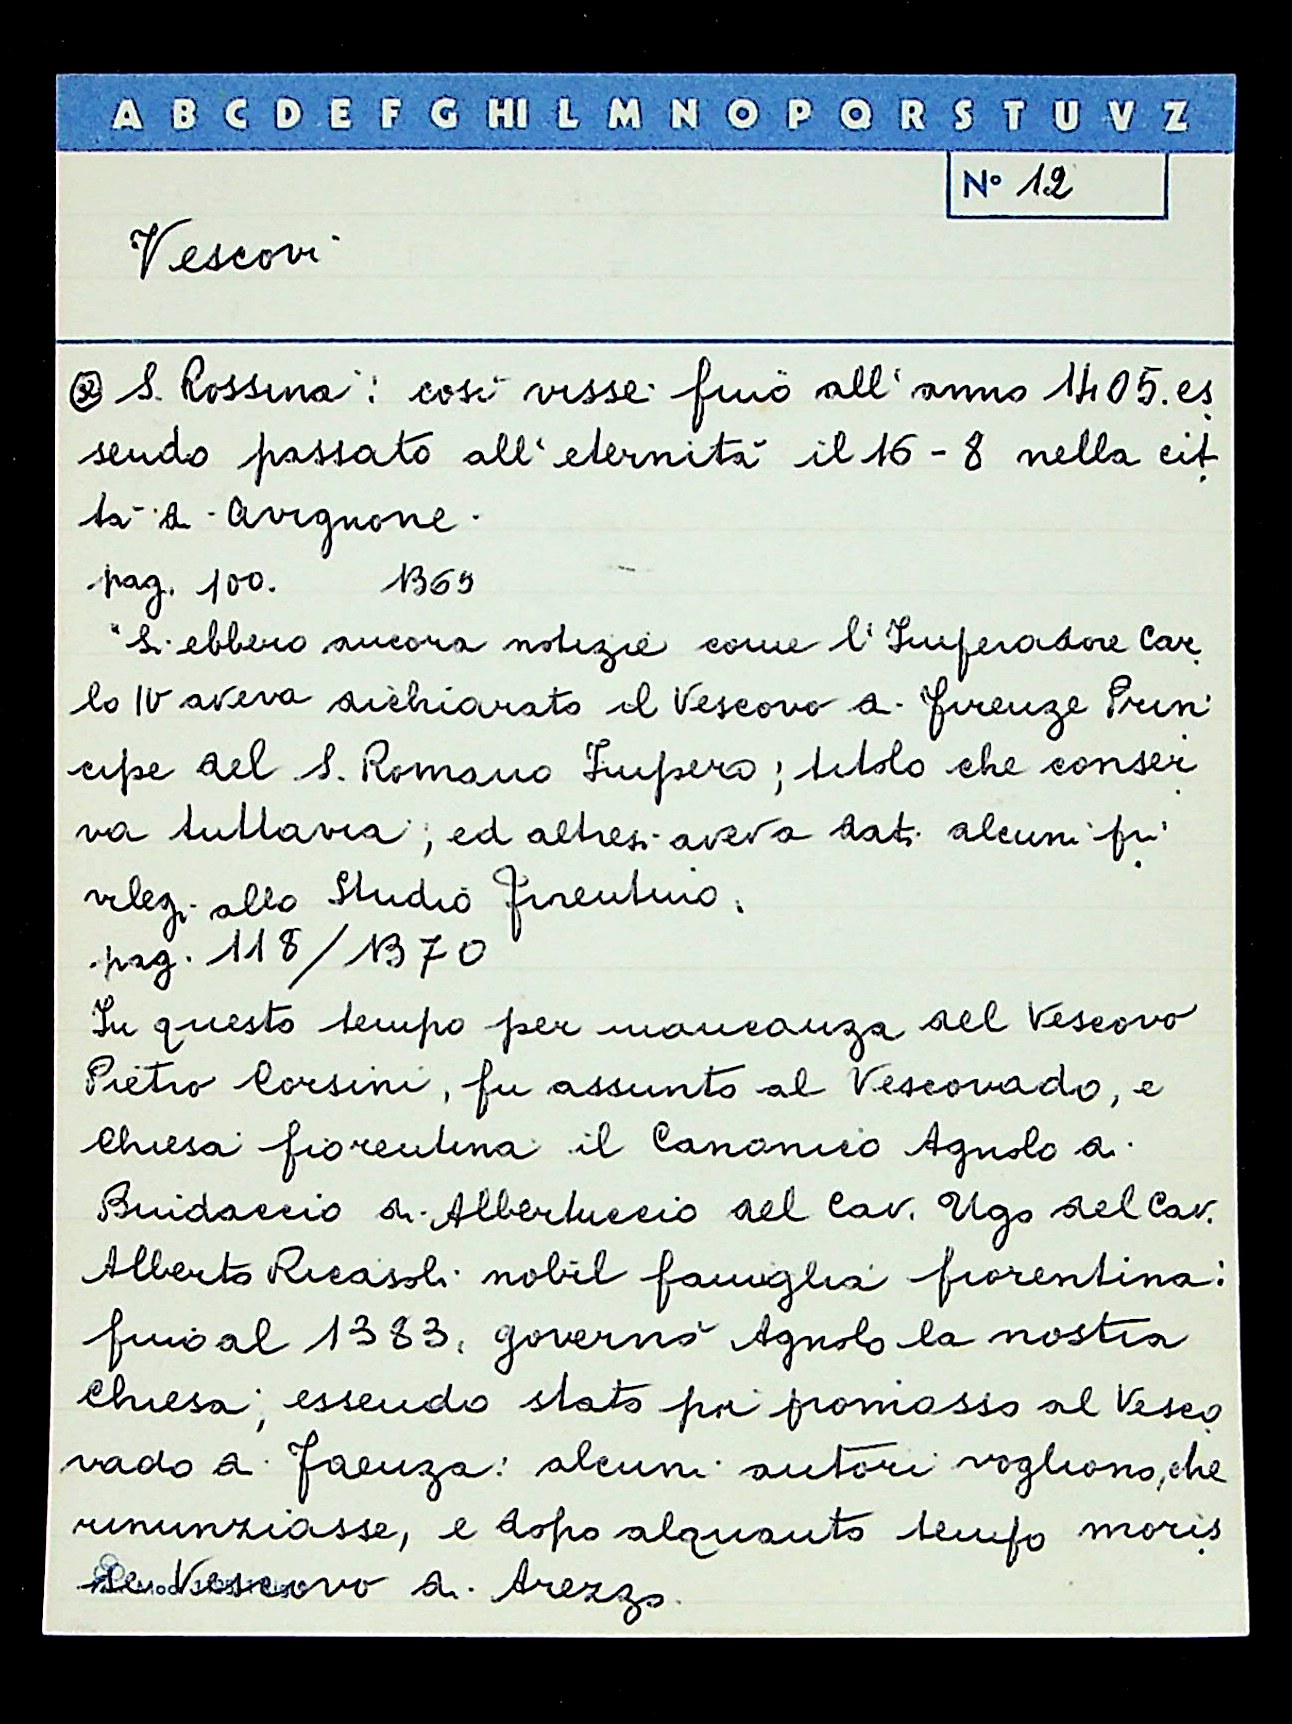 A B C D E F G HI L M N O P Q R S T U V Z
N° 12
Vescovi
S. Rossina: così visse fino all'anno 1405. es
sendo passato all'eternità il 16-8 nella cit
tà di Avignone.
pag. 100. 1369
"Si ebbero ancora notizie come l'Imperadore Car
lo IV aveva dichiarato il Vescovo di Firenze Prin
cipe del S. Romano Impero; titolo che conser
va tuttavia; ed altresi aveva dati alcuni pri
vilegi allo Studio Fiorentino.
pag. 118/1370
In questo tempo per mancanza del Vescovo
Pietro Corsini, fu assunto al Vescovado, e
Chiesa fiorentina il Canonico Agnolo di
Bindaccio di Albertuccio del Cav. Ugo del Cav.
Alberto Ricasoli nobil famiglia fiorentina:
fino al 1383. governò Agnolo la nostra
Chiesa; essendo stato poi promosso al Vesco
vado di Faenza: alcuni autori vogliono, che
rinunziasse, e dopo alquanto tempo moris
se Vescovo di Arezzo.